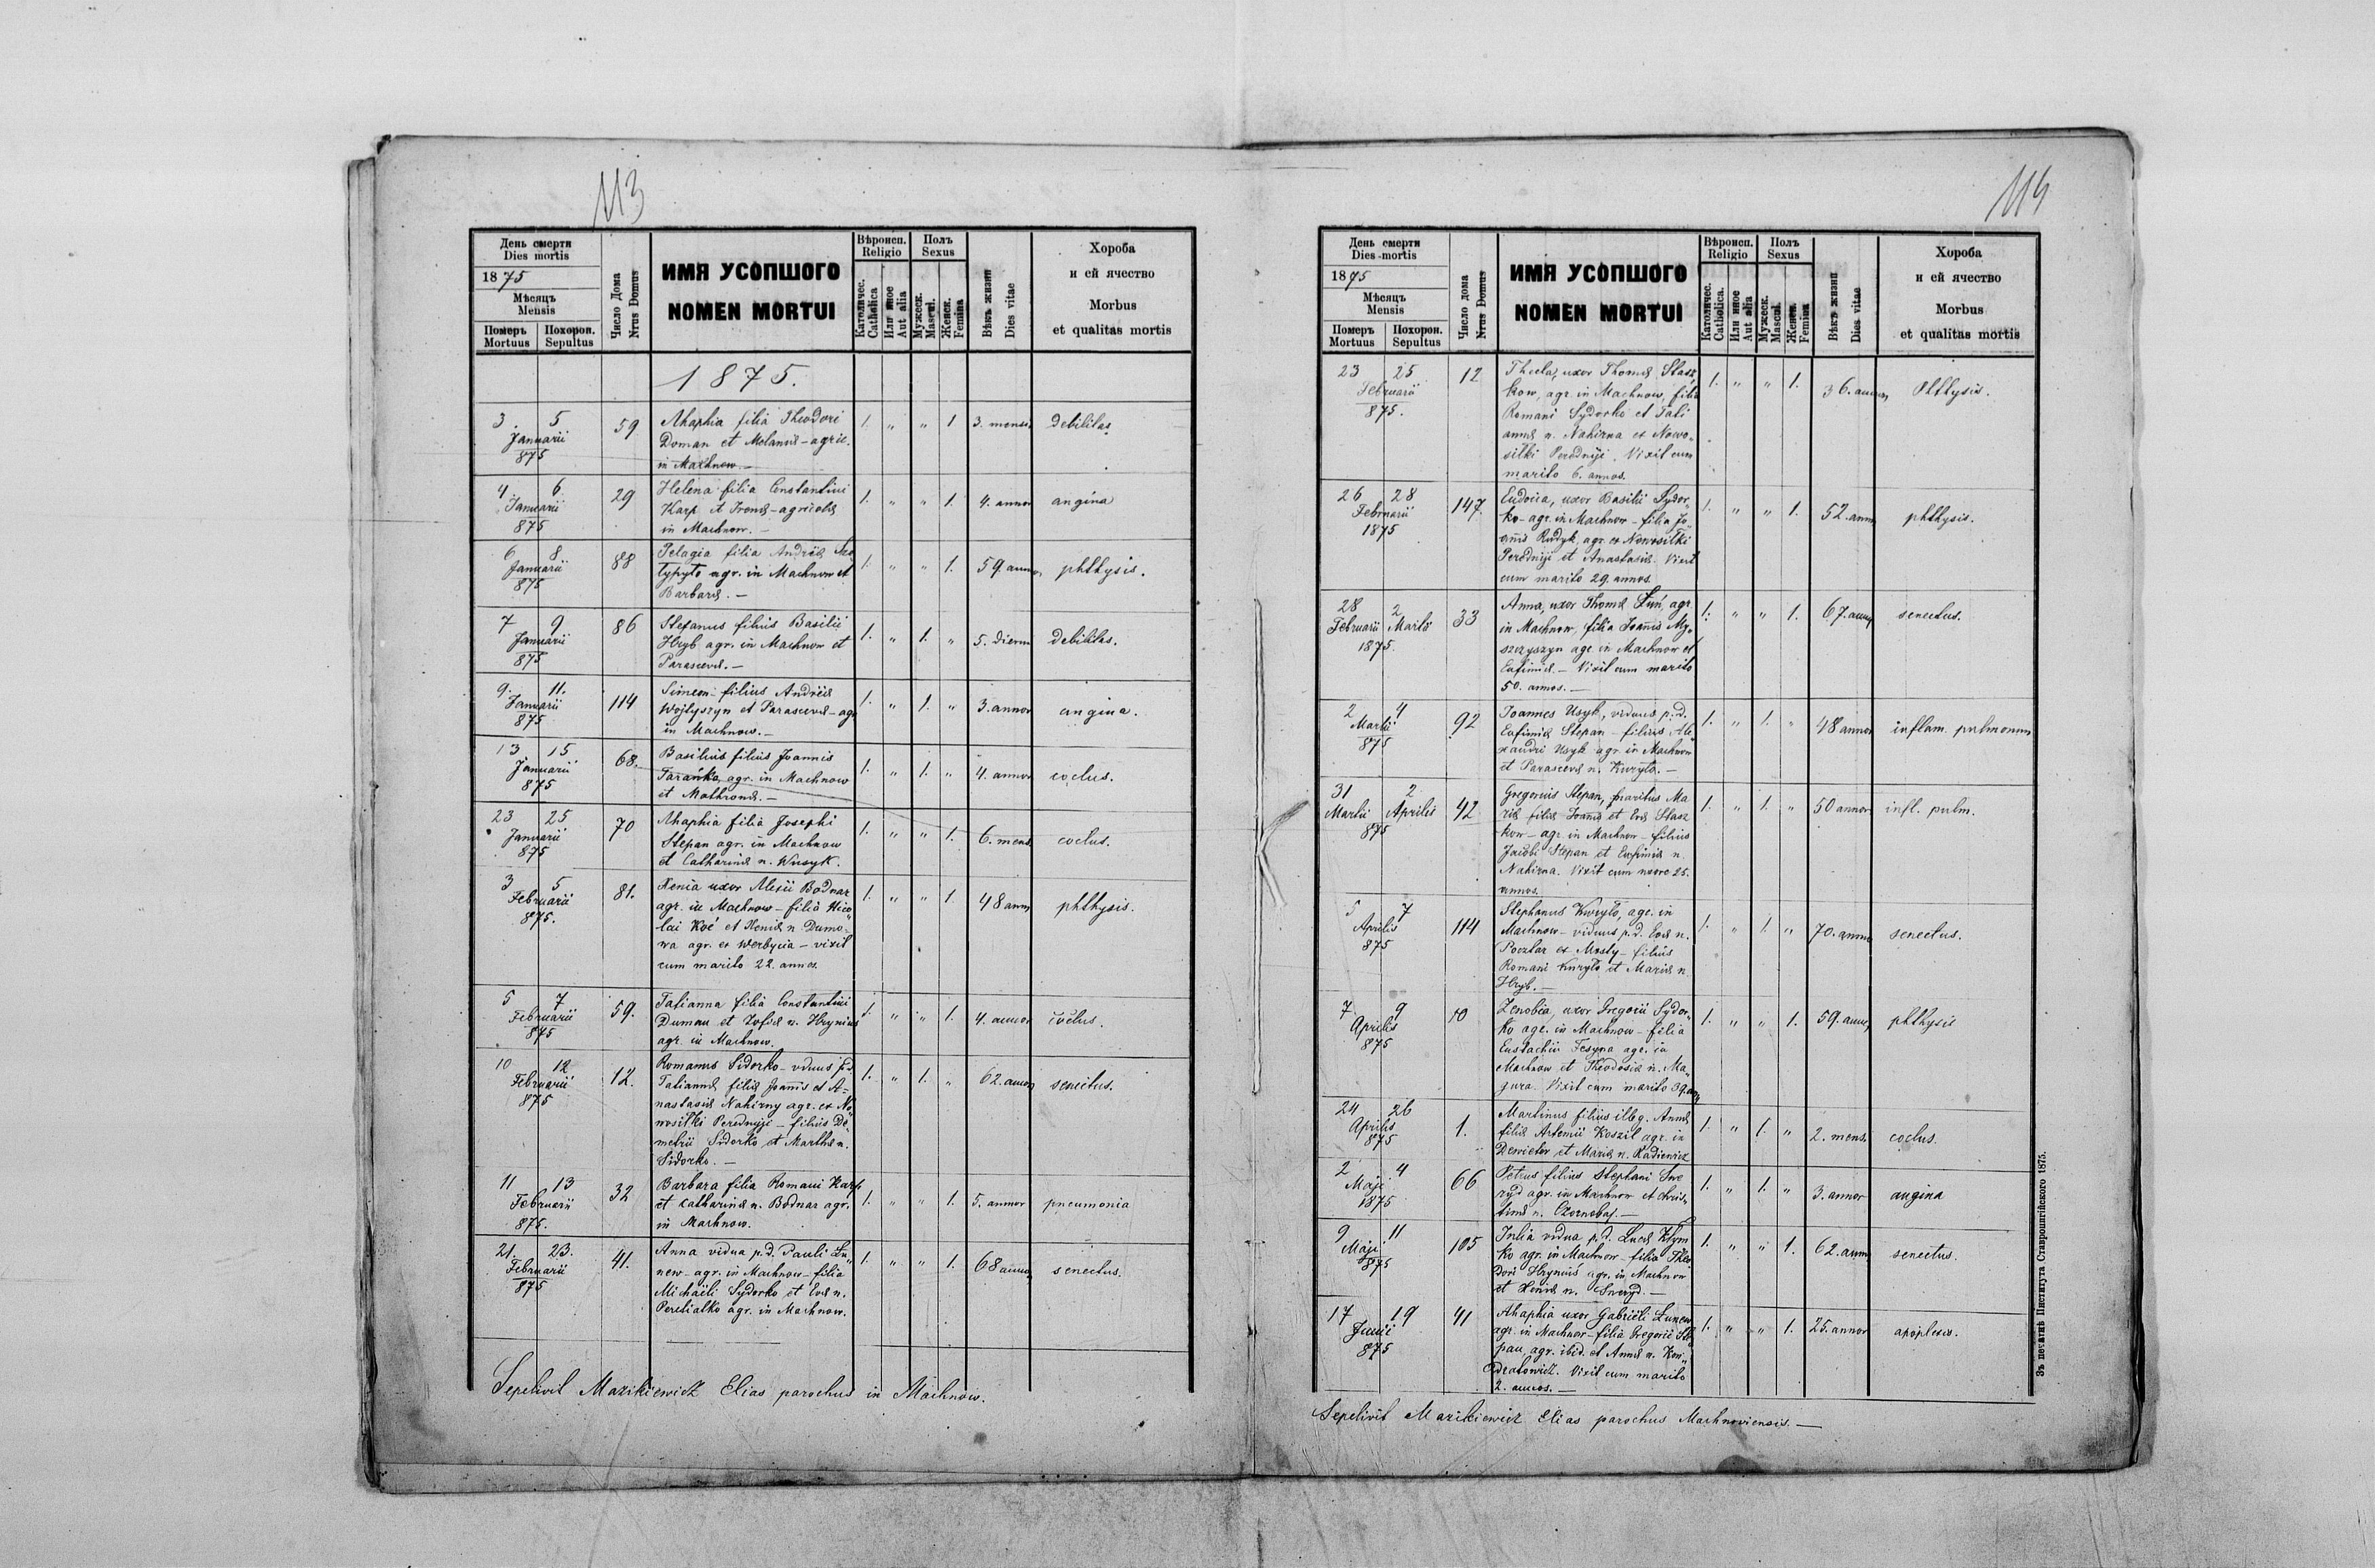 113
День смерти
Dies mortis
1875
Мѣсяцъ
Mensis
Померъ
Mortuus
Похорон.
Sepultus
Число Дома
Nrus Domus
ИМЯ УСОПШОГО
NOMEN MORTUI
Вѣроисп.
Religio
Католичес.
Catholica
Или иное
Aut alia
Полъ
Sexus
Мужеск.
Mascul.
Женск.
Femina
Вѣкъ жизни
Dies vitae
Хороба
и ей ячество
Morbus
et qualitas mortis
1875.
3 5
Januarii
875
59
Ahaphia filia Theodori
Doman et Melaniæ - agric.
in Machnow. -
1. " " 1
3. mensis
debilitas
4 6
Januarii
875
29
Helena filia Constantini
Karp et Ironæ - agricolæ
in Machnow. -
1. " " 1.
4. annor
angina
6 8
Januarii
875
88
Pelagia filia Andreæ
agr. in Machnow et
Barbaræ. -
1. " " 1.
59. annor
phthysis.
7 9
Januarii
875
86
Stefanus filius Basilii
Hryb agr. in Machnow et
Parascevæ. -
1. " 1. "
5. dierum
debilitas.
9. 11.
Januarii
875
114
Simeon filius Andreæ
Wojtyszyn et Parascevæ - agr
in Machnow. -
1. " 1. "
3. annor
angina.
13 15
Januarii
875
68.
Basilius filius Joannis
Tarańko, agr. in Machnow
et Mathronæ. -
1. " 1. "
4. annor
coclus.
23 25
Januarii
875
70
Ahaphia filia Josephi
Stepan agr. in Machnow
et Catharinæ n. Wusyk.
1. " " 1.
6. mens.
coclus.
3 5
Februarii
875.
81.
Xenia uxor Alexii Bodnar
agr. in Machnow - filia Nico
lai Koć et Xeniæ n. Dumo-
wa agr. ex Werbycia - vixit
cum marito 22. annos.
1. " " 1.
48 annor
phthysis.
5 7
Februarii
875
59.
Tatianna filia Constantini
Duman et Zofiæ n. Hryniuś
agr. in Machnow.
1. " " 1.
4. annor
coclus.
10 12
Februarii
875
12.
Romanus Sidorko - viduus p.d.
Tatiannæ filiæ Joannis et A-
nastasiæ Nahirny agr. ex No
wosiłki Peredniji - filius De
metrii Sidorko et Marthæ n.
Sidorko. -
1. " 1. "
62. annor
senectus.
11 13
Februarii
875.
32
Barbara filia Romani Karp
et Catharinæ n. Bodnar agr.
in Machnow.
1. " " 1.
5. annor
pneumonia
21. 23.
Februarii
875
41.
Anna vidua p.d. Pauli Łu
new - agr. in Machnow - filia
Michaëli Sydorko et Evæ n.
Peretiatko agr. in Machnow.
1. " " 1.
68 annor
senectus.
Sepelivit Mazikiewicz Elias parochus in Machnow.
114
День смерти
Dies mortis
1875
Мѣсяцъ
Mensis
Померъ
Mortuus
Похорон.
Sepultus
Число дома
Nrus Domus
ИМЯ УСОПШОГО
NOMEN MORTUI
Вѣроисп.
Religio
Католичес.
Catholica.
Или иное
Aut alia
Полъ
Sexus
Мужеск.
Mascul.
Женск.
Femina
Вѣкъ жизни
Dies vitae
Хороба
и ей ячество
Morbus
et qualitas mortis
23 25
Februarii
875.
12
Thecla, uxor Thomæ Stasz
kow, agr. in Machnow, filia
Romani Sydorko et Tati
annæ n. Nahirna ex Nowo
siłki Peredniji. Vixit cum
marito 6. annos.
1. " " 1.
36. annor
Phthysis.
26 28
Februarii
1875
147.
Eudocia, uxor Basilii Sydor
ko - agr. in Machnow - filia Jo
annis Rudyk, agr. ex Nowosiłki
Peredniji et Anastasiæ. Vixit
cum marito 29. annos.
1. " " 1.
52. annor
phthysis.
28 2
Februarii Martii
1875.
33
Anna, uxor Thomæ Łuń, agr.
in Machnow, filia Joannis My
szczyszyn agr. in Machnow et
Eufimiæ - Vixit cum marito
50. annos. -
1. " " 1.
67. annor
senectus.
2 4
Martii
875
92
Joannes Usyk, viduus p.d.
Eufimiæ Stepan - filius Ale
xandri Usyk agr. in Machnow
et Parascevæ n. Kuryło. -
1. " 1. "
48 annor
inflam. pulmonum
31 2
Martii Aprilis
875
42
Gregorius Stepan, maritus Ma
riæ filiæ Joannis et Evæ Stasz
kow - agr. in Machnow - filius
Jacobi Stepan et Eufimiæ n.
Nahirna. Vixit cum uxore 25.
annos.
1. " 1. "
50 annor
infl. pulm.
5 7
Aprilis
875
114
Stephanus Kuryło, agr. in
Machnow - viduus p.d. Evæ n.
Pocztar ex Mosty - filius
Romani Kuryło et Mariæ n.
Hryb. -
1. " 1. "
70. annor
senectus.
7 9
Aprilis
875
10
Zenobia, uxor Gregorii Sydor
ko agr. in Machnow - filia
Eustachii Fesyna agr. in
Machnow et Theodosiæ n. Ma
gura. Vixit cum marito 39. ann
1. " " 1.
59. annor
phthysis
24 26
Aprilis
875
1.
Martinus filius illeg. Annæ
filiæ Artemii Koszil agr. in
et Mariæ n. Radiewicz
1. " 1. "
2. mens.
coclus.
2 4
Maji
1875
66
Petrus filius Stephani Swe
ryd agr. in Machnow et Chris
tinæ n. Czornobaj. -
1. " 1. "
3. annor
angina
9 11
Maji
875
105
Julia vidua p.d. Lucæ Kłym
ko agr. in Machnow - filia Theo
dori Hryniuś agr. in Machnow
et Xeniæ n. Sweryd. -
1. " " 1.
62. annor
senectus.
17 19
Junii
875
41
Ahaphia uxor Gabrieli Łunew
agr. in Machnow - filia Gregorii Ste
pan, agr. ibid. et Annæ n. Kon
dratowicz. Vixit cum marito
2. annos. -
1. " " 1.
25. annor
apoplexis.
Sepelivit Mazikiewicz Elias parochus Machnoviensis. -
Зъ печатнѣ Института Ставропигійского 1875.